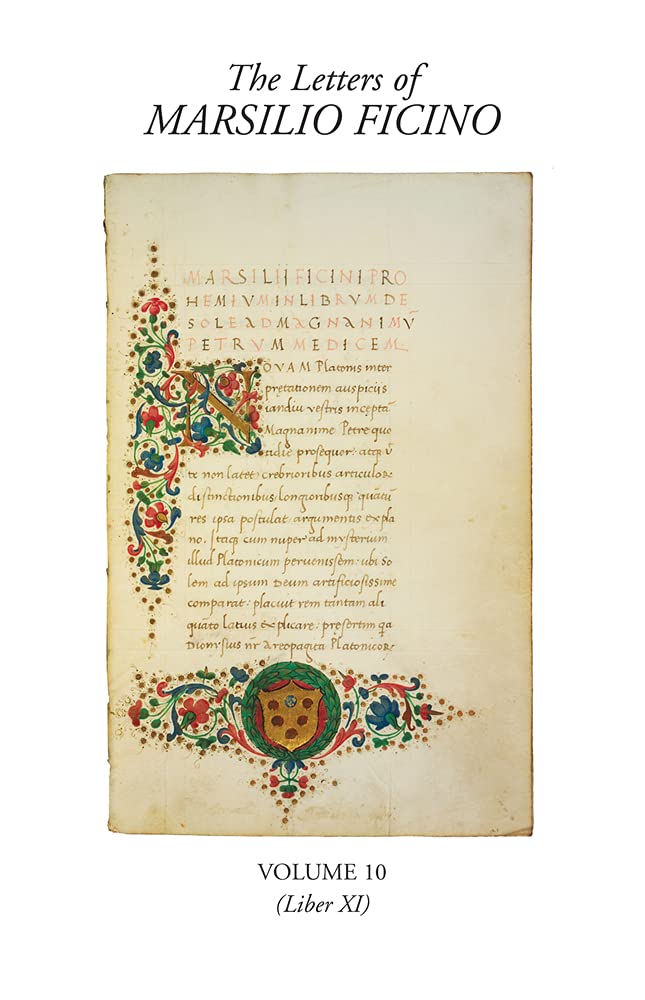 The Letters of
MARSILIO FICINO
MARSILII FICINI PRO
HEMIUM IN LIBRUM DE
SOLE AD MAGNANIMŪ
PETRUM MEDICEM
NOVAM Platonis inter
pretationem auspiciis
iandiu vestris inceptā
Magnanime Petre quo
tidie prosequor: atq; ū
te non latet: crebrioribus articulor
distinctionibus: longioribusq; quātū
res ipsa postulat: argumentis expla
no. Itaq; cum nuper ad mysterium
illud Platonicum pervenissem: ubi So
lem ad ipsum Deum artificiosissime
comparat: placuit rem tantam ali
quāto latius explicare: presertim qa
Dionysius nr̄ Areopagita Platonicor
VOLUME 10
(Liber XI)